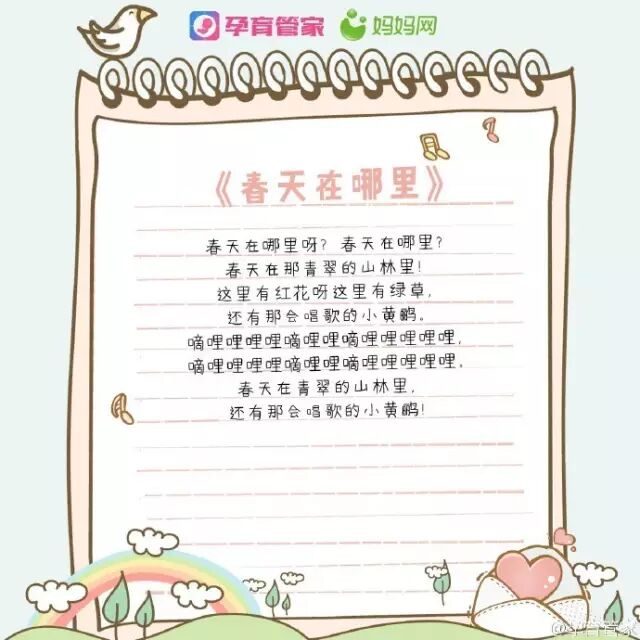 孕育管家 妈妈网
《春天在哪里》
春天在哪里呀？春天在哪里？
春天在那青翠的山林里！
这里有红花呀这里有绿草，
还有那会唱歌的小黄鹂。
嘀哩哩哩哩嘀哩哩嘀哩哩哩哩哩，
嘀哩哩哩哩嘀哩哩嘀哩哩哩哩哩，
春天在青翠的山林里，
还有那会唱歌的小黄鹂！
@孕育管家